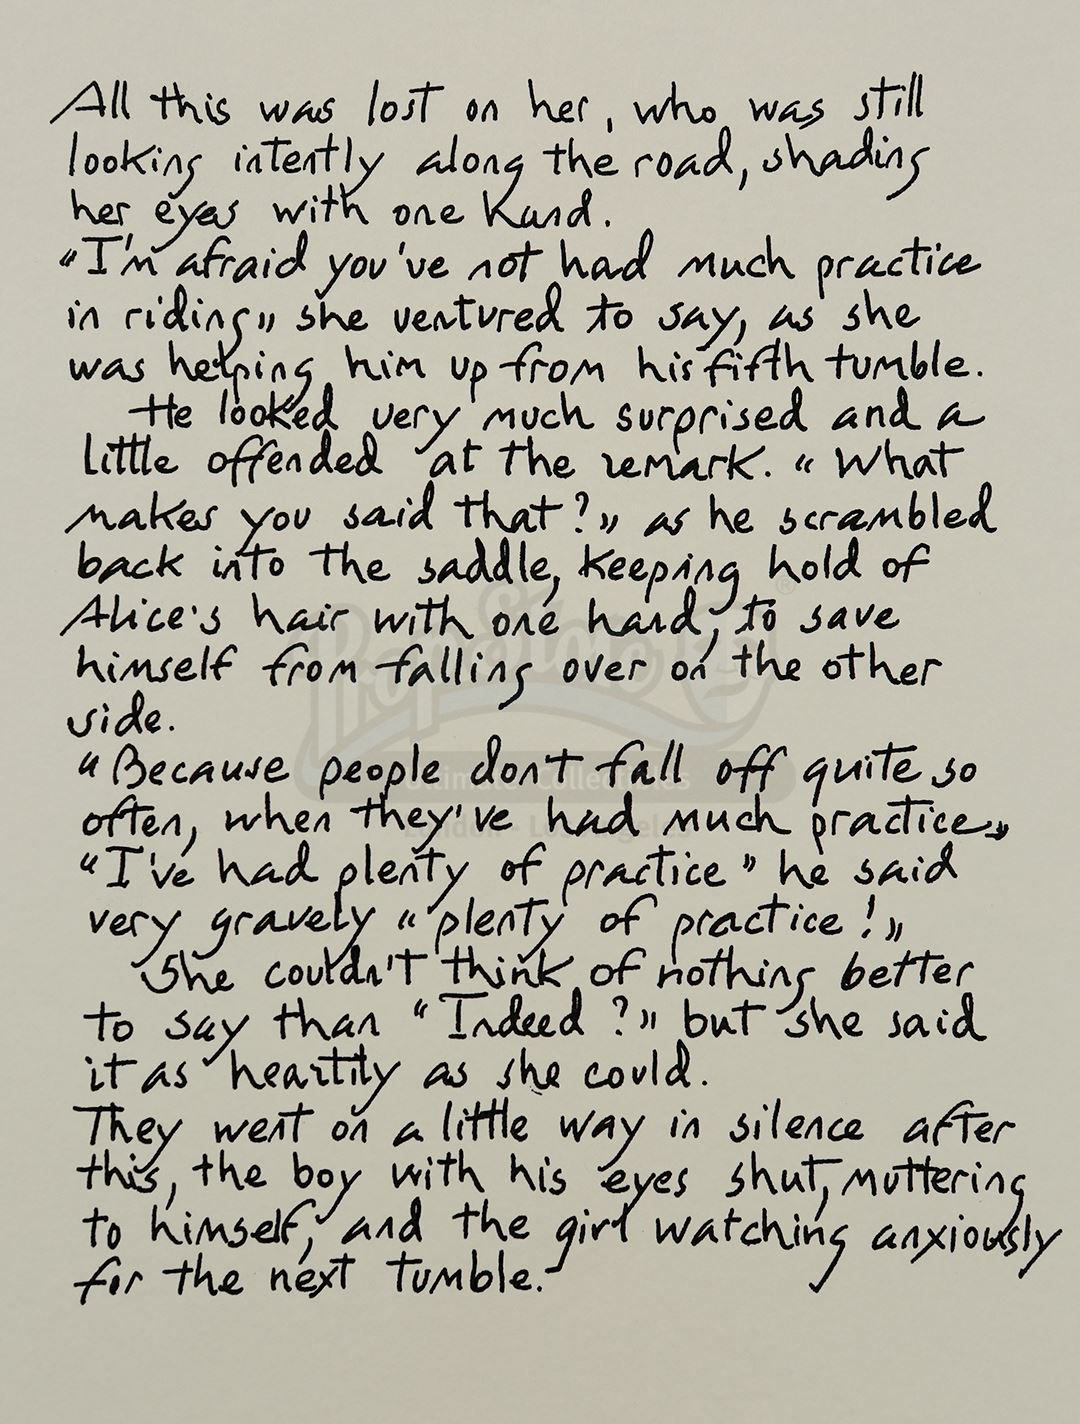 All this was lost on her, who was still
looking intently along the road, shading
her eyes with one hand.
"I'm afraid you've not had much practice
in riding" she ventured to say, as she
was helping him up from his fifth tumble.
He looked very much surprised and a
little offended at the remark. "What
makes you said that?" as he scrambled
back into the saddle, keeping hold of
Alice's hair with one hand, to save
himself from falling over on the other
side.
"Because people don't fall off quite so
often, when they've had much practice"
"I've had plenty of practice" he said
very gravely "plenty of practice!"
She couldn't think of nothing better
to say than "Indeed?" but she said
it as heartily as she could.
They went on a little way in silence after
this, the boy with his eyes shut, muttering
to himself, and the girl watching anxiously
for the next tumble.
Prop Store
Ultimate Collectibles
London - Los Angeles